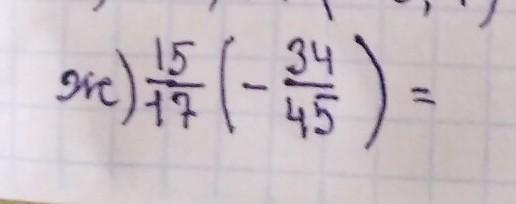 ж) 15/17 (- 34/45) =